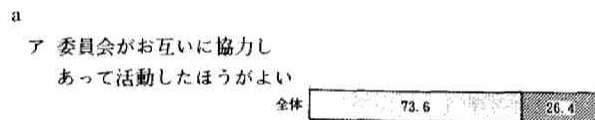 a
ア 委員会がお互いに協力し
あって活動したほうがよい
全体 73.6 26.4